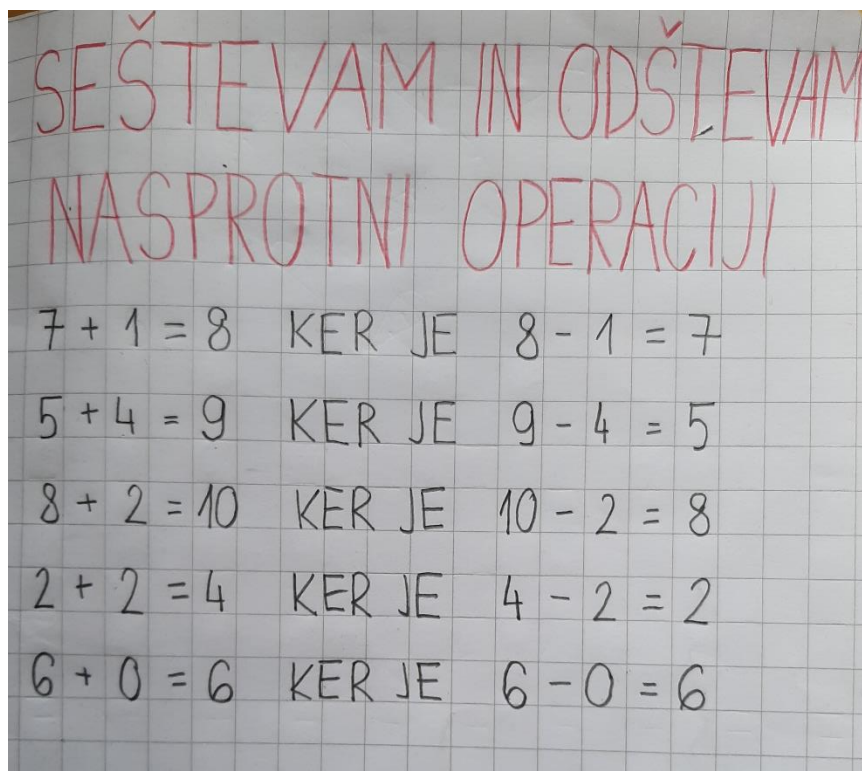 SEŠTEVAM IN ODŠTEVAM
NASPROTNI OPERACIJI
7 + 1 = 8 KER JE 8 - 1 = 7
5 + 4 = 9 KER JE 9 - 4 = 5
8 + 2 = 10 KER JE 10 - 2 = 8
2 + 2 = 4 KER JE 4 - 2 = 2
6 + 0 = 6 KER JE 6 - 0 = 6